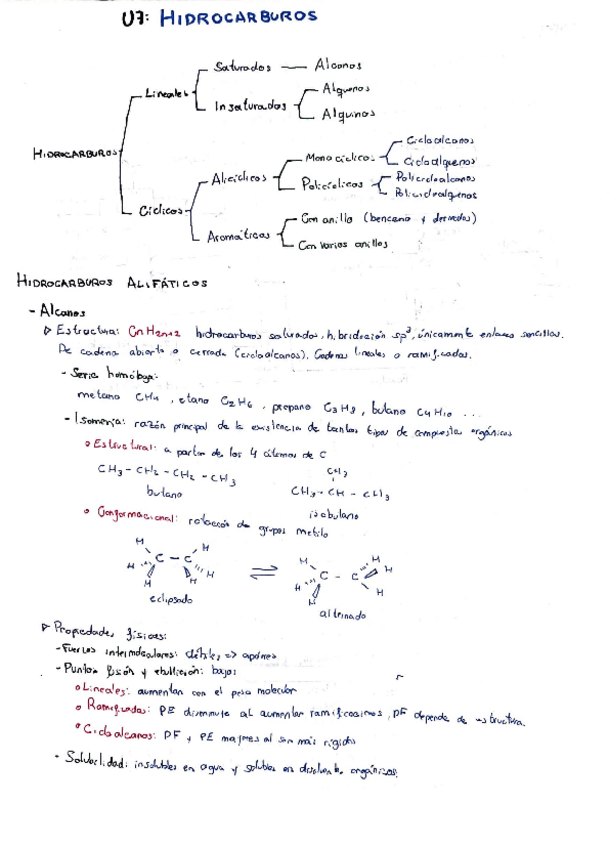 U7: HIDROCARBUROS
Saturados — Alcanos
Lineales
Insaturados
Alquenos
Alquinos
HIDROCARBUROS
Monocíclicos
Cicloalcanos
Cicloalquenos
Alicíclicos
Policíclicos
Policicloalcanos
Policicloalquenos
Cíclicos
Aromáticos
Con anillo (benceno y derivados)
Con varios anillos
HIDROCARBUROS ALIFÁTICOS
- Alcanos
▷ Estructura: CnH2n+2 hidrocarburos saturados, hibridación sp³, únicamente enlaces sencillos.
De cadena abierta o cerrada (cicloalcanos). Cadenas lineales o ramificadas.
- Serie homóloga:
metano CH4, etano C2H6, propano C3H8, butano C4H10 ...
- Isomería: razón principal de la existencia de tantos tipos de compuestos orgánicos
o Estructural: a partir de los 4 átomos de C
CH3
CH3 - CH2 - CH2 - CH3
CH3 - CH - CH3
butano
isobutano
o Conformacional: rotación de grupos metilo
H H H H
C - C C - C
H H H H H H H H
eclipsado
alternado
▷ Propiedades físicas:
- Fuerzas intermoleculares: débiles => apolares
- Puntos fusión y ebullición: bajos
o Lineales: aumentan con el peso molecular
o Ramificados: PE disminuye al aumentar ramificaciones, PF depende de estructura.
o Cicloalcanos: PF y PE mayores al ser más rígidos
- Solubilidad: insolubles en agua y solubles en disolvente orgánicos.